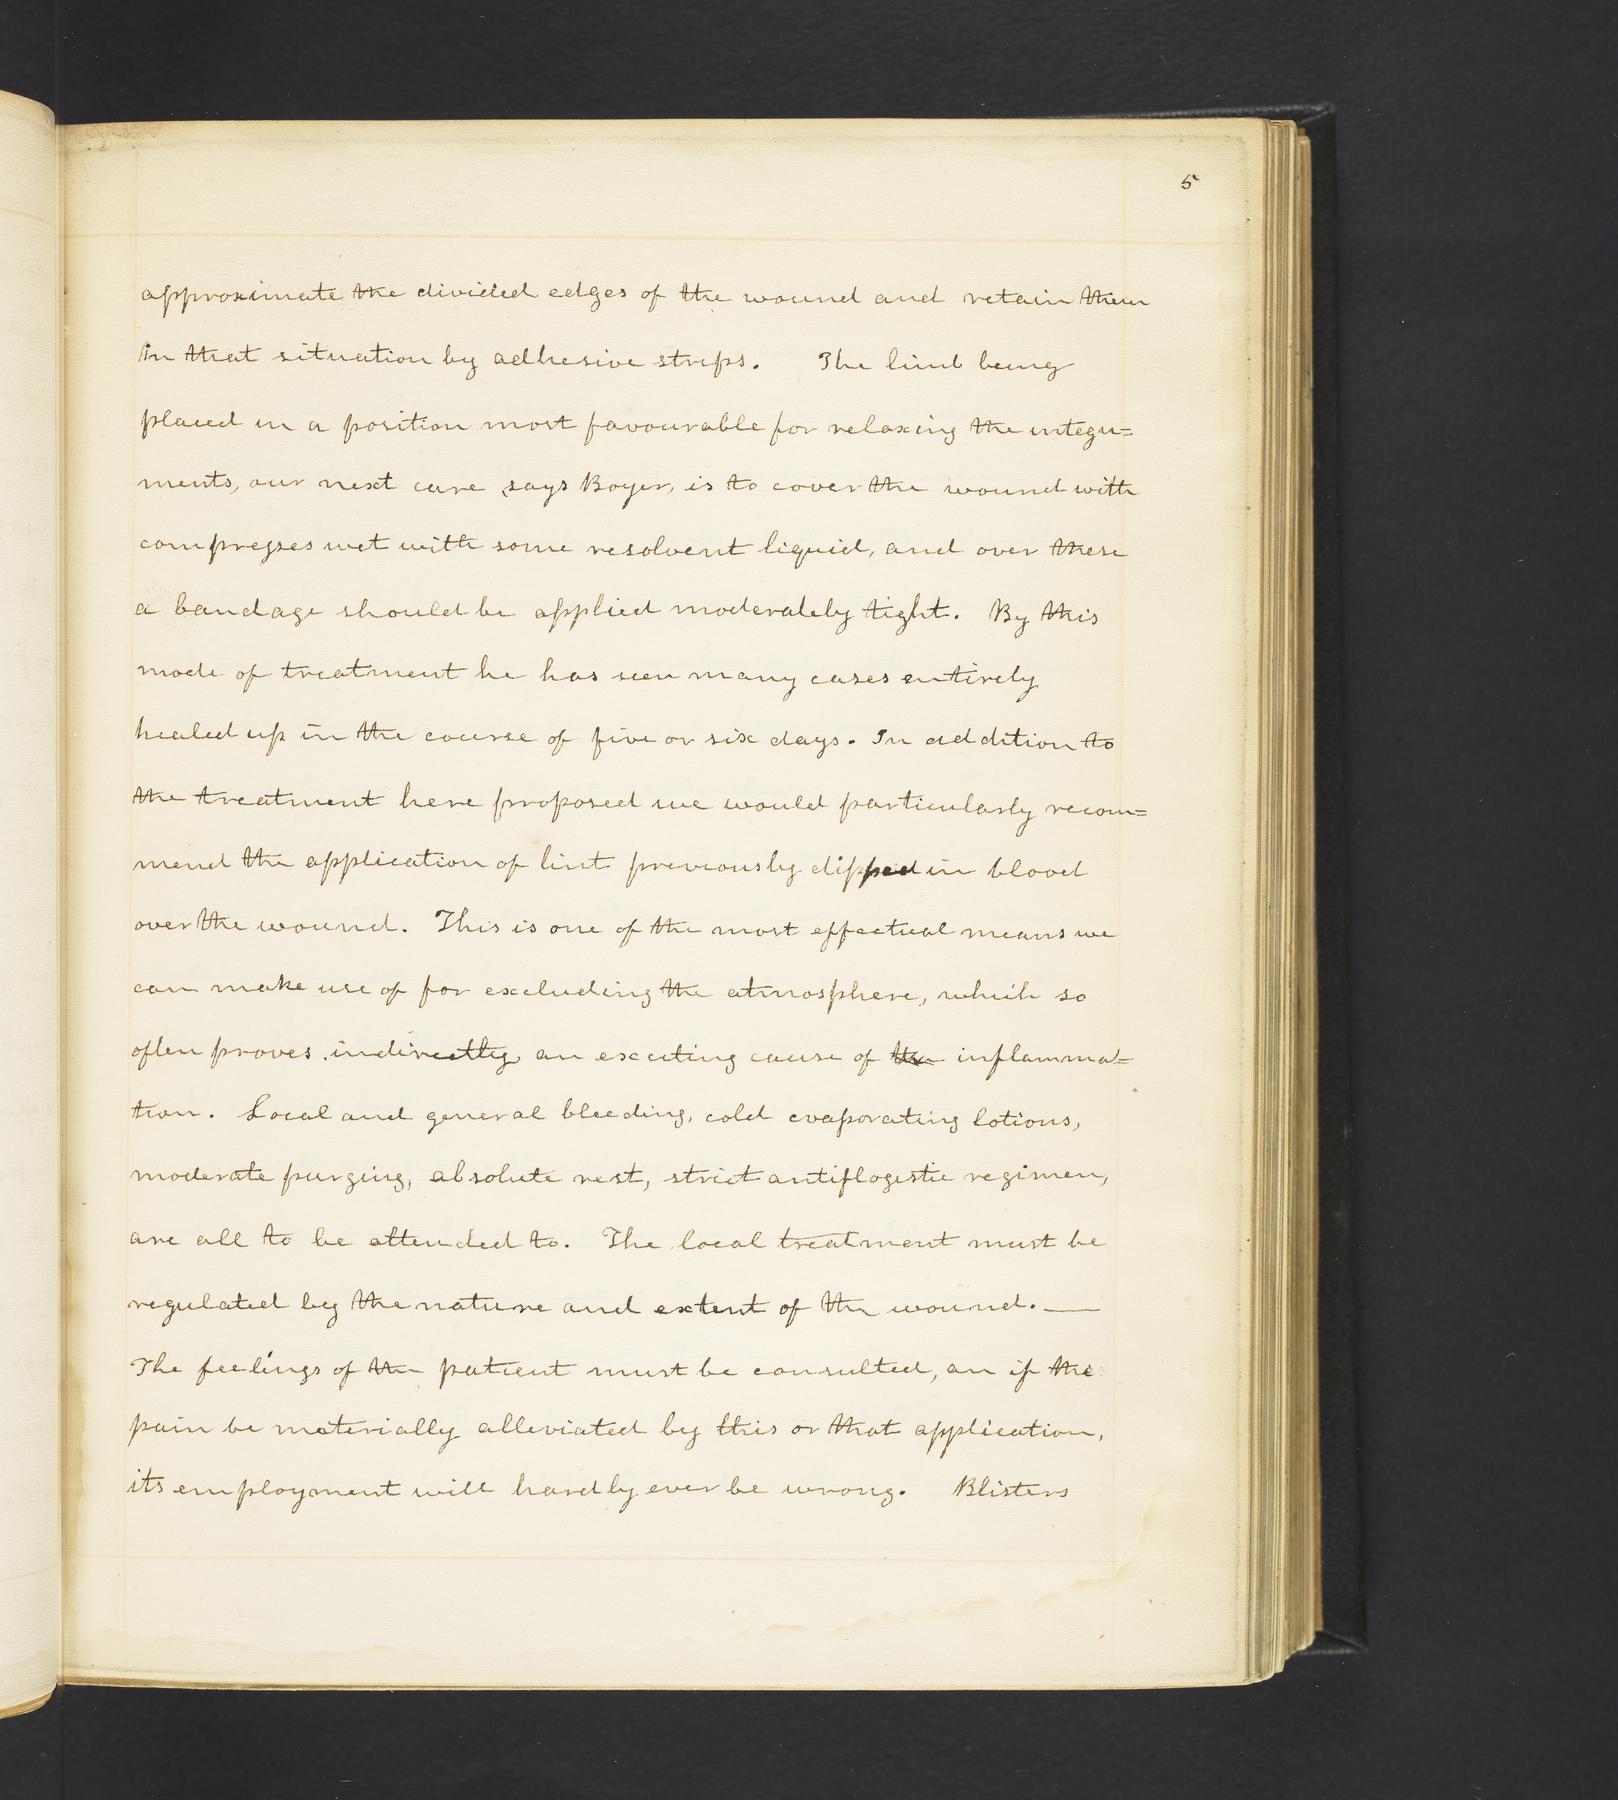 5
approximate the divided edges of the wound and retain them
in that situation by adhesive strips. The limb being
placed in a position most favourable for relaxing the integu=
ments, our next care, says Boyer, is to cover the wound with
compresses wet with some resolvent liquid, and over these
a bandage should be applied moderately tight. By this
mode of treatment he has seen many cases entirely
healed up in the course of five or six days. In addition to
the treatment here proposed we would particularly recom=
mend the application of lint previously dipped in blood
over the wound. This is one of the most effectual means we
can make use of for excluding the atmosphere, which so
often proves indirectly an exciting cause of the inflamma=
tion. Local and general bleeding, cold evaporating lotions,
moderate purging, absolute rest, strict antiflogistic regimen,
are all to be attended to. The local treatment must be
regulated by the nature and extent of the wound. —
The feelings of the patient must be consulted, an if the
pain be materially alleviated by this or that application,
its employment will hardly ever be wrong. Blisters